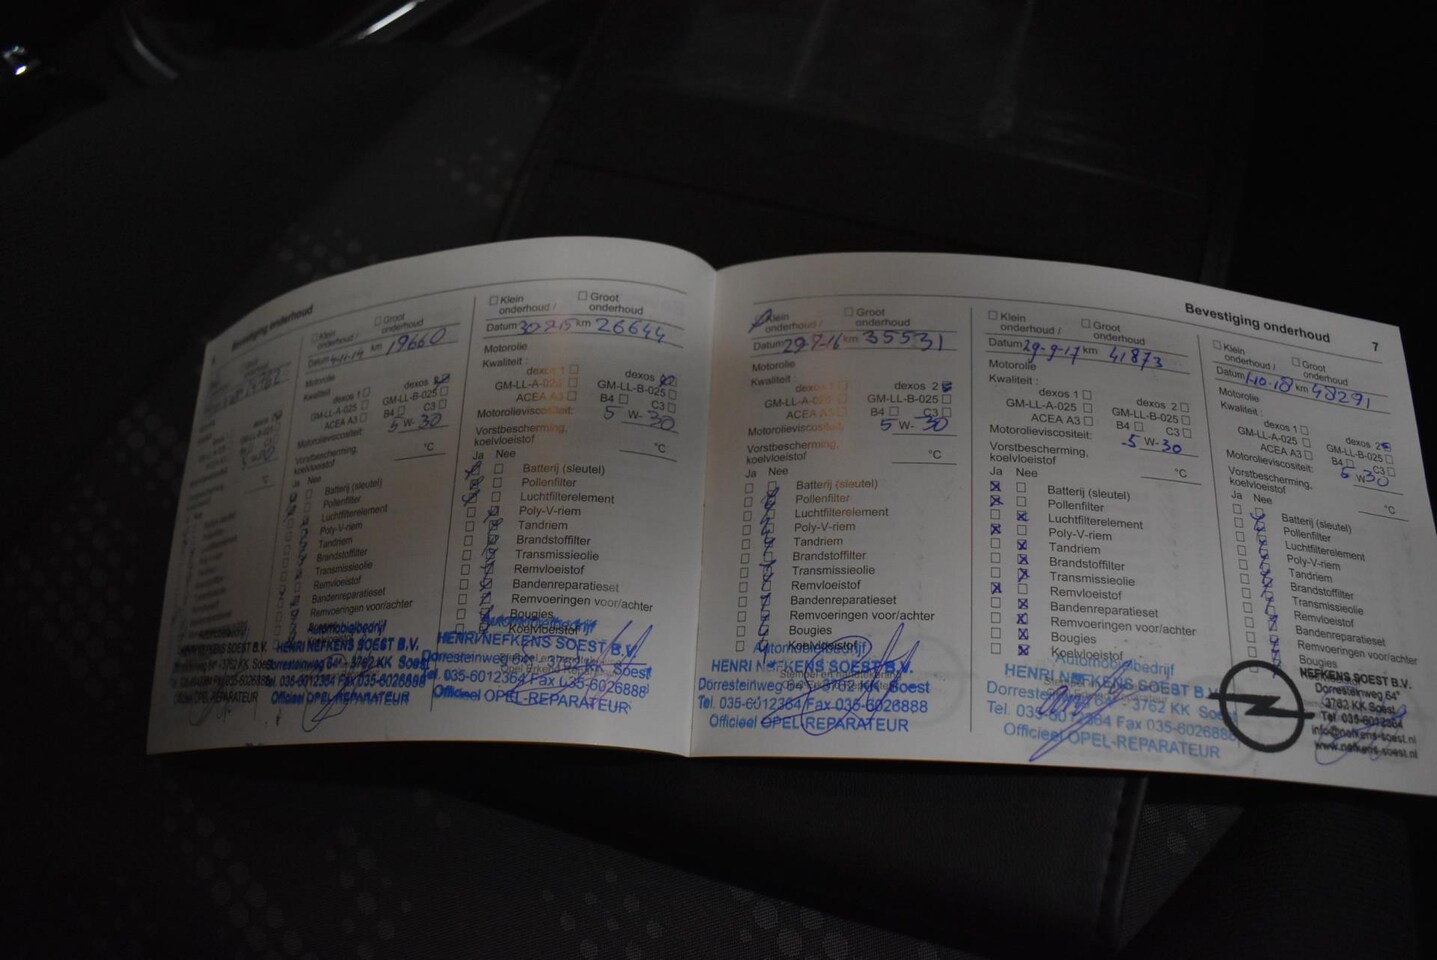 6 Bevestiging onderhoud
Klein onderhoud / Groot onderhoud
Datum 4-11-14 km 19660
Motorolie
Kwaliteit
dexos 1 dexos 2
GM-LL-A-025 GM-LL-B-025
ACEA A3 B4 C3
Motorolieviscositeit: 5 W- 30
Vorstbescherming,
koelvloeistof °C
Ja Nee
Batterij (sleutel)
Pollenfilter
Luchtfilterelement
Poly-V-riem
Tandriem
Brandstoffilter
Transmissieolie
Remvloeistof
Bandenreparatieset
Remvoeringen voor/achter
Automobielbedrijf
HENRI NEFKENS SOEST B.V.
Dorresteinweg 64ª - 3762 KK Soest
Tel. 035-6012364 Fax 035-6026888
Officieel OPEL-REPARATEUR
Klein onderhoud / Groot onderhoud
Datum km 26644
Motorolie
Kwaliteit :
dexos 1 dexos
GM-LL-A-025 GM-LL-B-025
ACEA A3 B4 C3
Motorolieviscositeit: 5 W- 30
Vorstbescherming,
koelvloeistof °C
Ja Nee
Batterij (sleutel)
Pollenfilter
Luchtfilterelement
Poly-V-riem
Tandriem
Brandstoffilter
Transmissieolie
Remvloeistof
Bandenreparatieset
Remvoeringen voor/achter
Bougies
Koelvloeistof
Automobielbedrijf
HENRI NEFKENS SOEST B.V.
Dorresteinweg 64ª - 3762 KK Soest
Tel. 035-6012364 Fax 035-6026888
Officieel OPEL-REPARATEUR
Bevestiging onderhoud 7
Klein onderhoud / Groot onderhoud
Datum 29-9-16 km 35531
Motorolie
Kwaliteit :
dexos 1 dexos 2
GM-LL-A-025 GM-LL-B-025
ACEA A3 B4 C3
Motorolieviscositeit: 5 W- 30
Vorstbescherming,
koelvloeistof °C
Ja Nee
Batterij (sleutel)
Pollenfilter
Luchtfilterelement
Poly-V-riem
Tandriem
Brandstoffilter
Transmissieolie
Remvloeistof
Bandenreparatieset
Remvoeringen voor/achter
Bougies
Koelvloeistof
Automobielbedrijf
HENRI NEFKENS SOEST B.V.
Dorresteinweg 64ª - 3762 KK Soest
Tel. 035-6012364 Fax 035-6026888
Officieel OPEL-REPARATEUR
Klein onderhoud / Groot onderhoud
Datum 29-9-17 km 41873
Motorolie
Kwaliteit :
dexos 1 dexos 2
GM-LL-A-025 GM-LL-B-025
ACEA A3 B4 C3
Motorolieviscositeit: 5 W- 30
Vorstbescherming,
koelvloeistof °C
Ja Nee
Batterij (sleutel)
Pollenfilter
Luchtfilterelement
Poly-V-riem
Tandriem
Brandstoffilter
Transmissieolie
Remvloeistof
Bandenreparatieset
Remvoeringen voor/achter
Bougies
Koelvloeistof
Automobielbedrijf
HENRI NEFKENS SOEST B.V.
Dorresteinweg 64ª - 3762 KK Soest
Tel. 035-6012364 Fax 035-6026888
Officieel OPEL-REPARATEUR
Klein onderhoud / Groot onderhoud
Datum 1-10-18 km 48291
Motorolie
Kwaliteit :
dexos 1 dexos 2
GM-LL-A-025 GM-LL-B-025
ACEA A3 B4 C3
Motorolieviscositeit: 5 W- 30
Vorstbescherming,
koelvloeistof °C
Ja Nee
Batterij (sleutel)
Pollenfilter
Luchtfilterelement
Poly-V-riem
Tandriem
Brandstoffilter
Transmissieolie
Remvloeistof
Bandenreparatieset
Remvoeringen voor/achter
Bougies
NEFKENS SOEST B.V.
Dorresteinweg 64ª
3762 KK Soest
Tel. 035-6012364
info@nefkens-soest.nl
www.nefkens-soest.nl